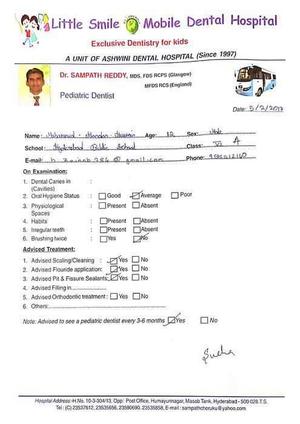 Little Smile Mobile Dental Hospital
Exclusive Dentistry for kids
A UNIT OF ASHWINI DENTAL HOSPITAL (Since 1997)
Dr. SAMPATH REDDY, MDS, FDS RCPS (Glasgow)
MFDS RCS (England)
Pediatric Dentist
Date:
Name: Mohammed Age: 12 Sex: Male
School: Hyderabad Public School Class: A
E-mail: Phone:
On Examination:
1. Dental Caries in :
(Cavities)
2. Oral Hygiene Status : Good Average Poor
3. Physiological : Present Absent
Spaces
4. Habits : Present Absent
5. Irregular teeth : Present Absent
6. Brushing twice : Yes No
Adviced Treatment:
1. Advised Scaling/Cleaning : Yes No
2. Advised Flouride application: Yes No
3. Advised Pit & Fissure Sealants: Yes No
4. Advised Filling in
5. Advised Orthodontic treatment : Yes No
6. Others:
Note: Advised to see a pediatric dentist every 3-6 months Yes No
Hospital Address -H.No. 10-3-304/13, Opp: Post Office, Humayunnagar, Masab Tank, Hyderabad - 500 028.T.S.
Tel : (C) 23537612, 23535656, 23590690, 23535858, E-mail : sampathchoruku@yahoo.com